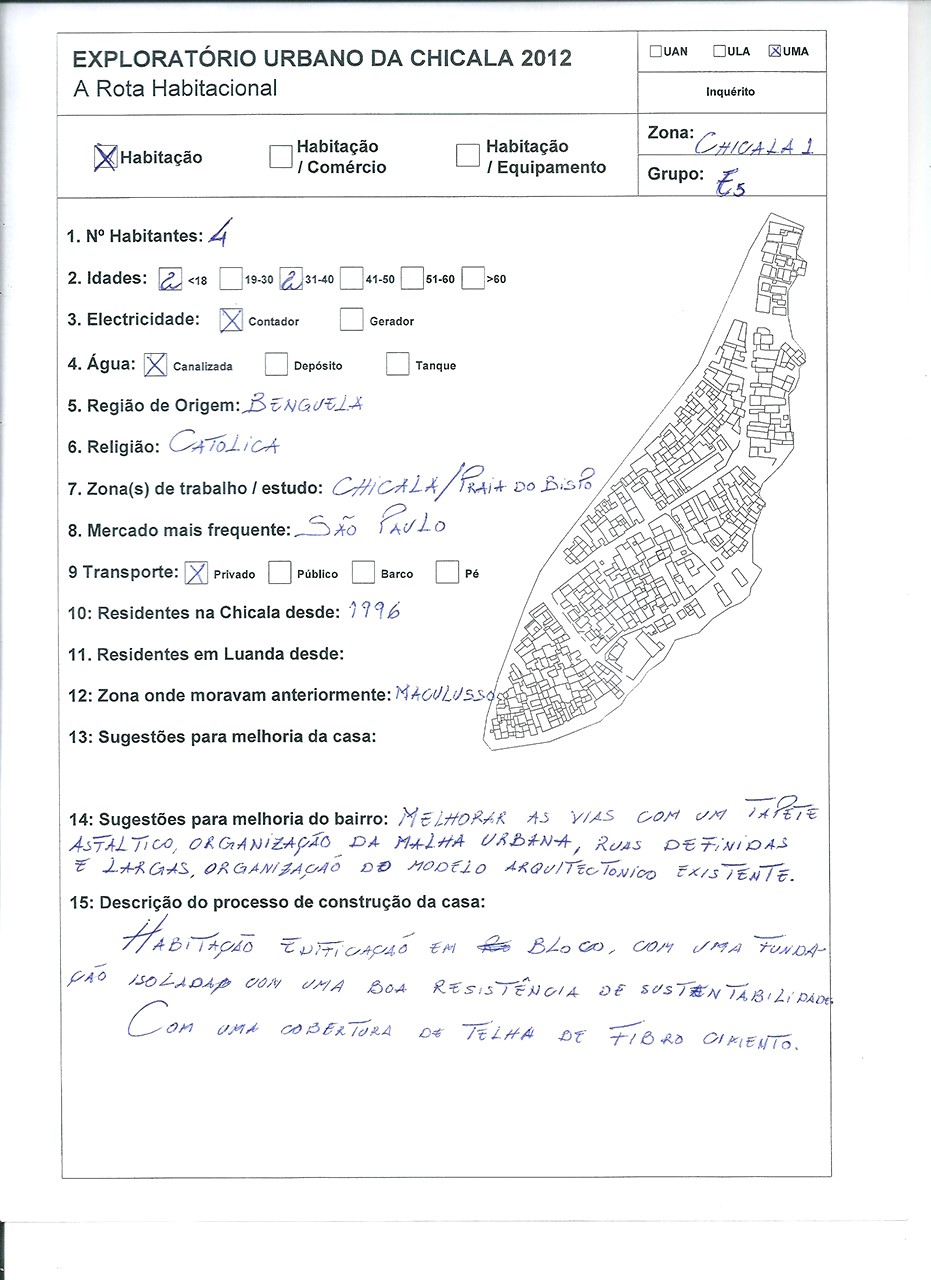 EXPLORATÓRIO URBANO DA CHICALA 2012
A Rota Habitacional
UAN ULA UMA
Inquérito
Habitação
Habitação / Comércio
Habitação / Equipamento
Zona: CHICALA 1
Grupo: E5
1. Nº Habitantes: 4
2. Idades: 2 <18 19-30 2 31-40 41-50 51-60 >60
3. Electricidade: X Contador Gerador
4. Água: X Canalizada Depósito Tanque
5. Região de Origem: BENGUELA
6. Religião: CATOLICA
7. Zona(s) de trabalho / estudo: CHICALA/PRAIA DO BISPO
8. Mercado mais frequente: SÃO PAULO
9 Transporte: X Privado Público Barco Pé
10: Residentes na Chicala desde: 1996
11. Residentes em Luanda desde:
12: Zona onde moravam anteriormente: MACULUSSO
13: Sugestões para melhoria da casa:
14: Sugestões para melhoria do bairro: MELHORAR AS VIAS COM UM TAPETE
ASFALTICO, ORGANIZAÇÃO DA MALHA URBANA, RUAS DEFINIDAS
E LARGAS, ORGANIZAÇÃO DO MODELO ARQUITECTONICO EXISTENTE.
15: Descrição do processo de construção da casa:
HABITAÇÃO EDIFICAÇÃO EM BLOCO, COM UMA FUNDA-
ÇÃO ISOLADA COM UMA BOA RESISTÊNCIA DE SUSTENTABILIDADE
COM UMA COBERTURA DE TELHA DE FIBRO CIMENTO.